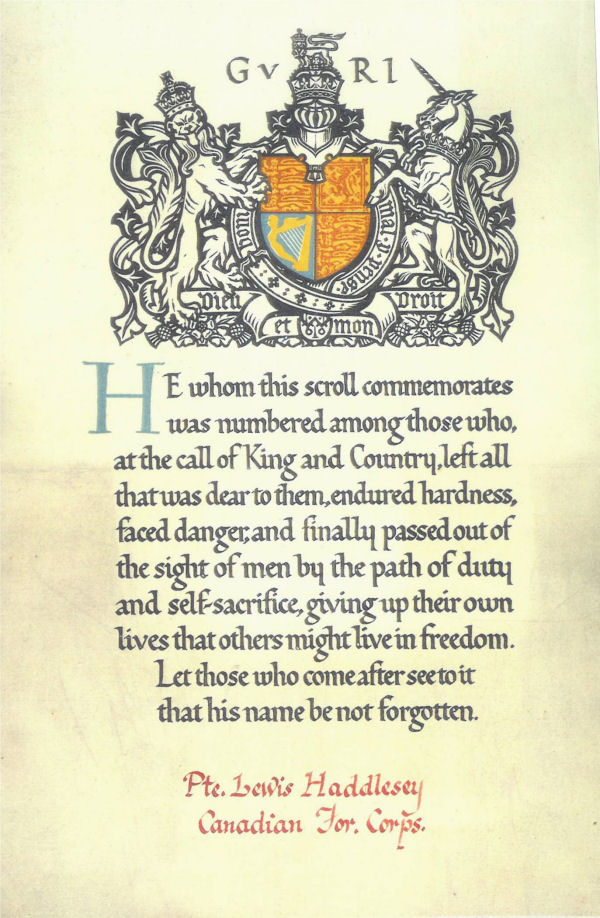 G V R I
Honi
mal.y.pense
Dieu
et mon
Droit
HE whom this scroll commemorates
was numbered among those who,
at the call of King and Country, left all
that was dear to them, endured hardness,
faced danger, and finally passed out of
the sight of men by the path of duty
and self-sacrifice, giving up their own
lives that others might live in freedom.
Let those who come after see to it
that his name be not forgotten.
Pte. Lewis Haddlesey
Canadian For. Corps.